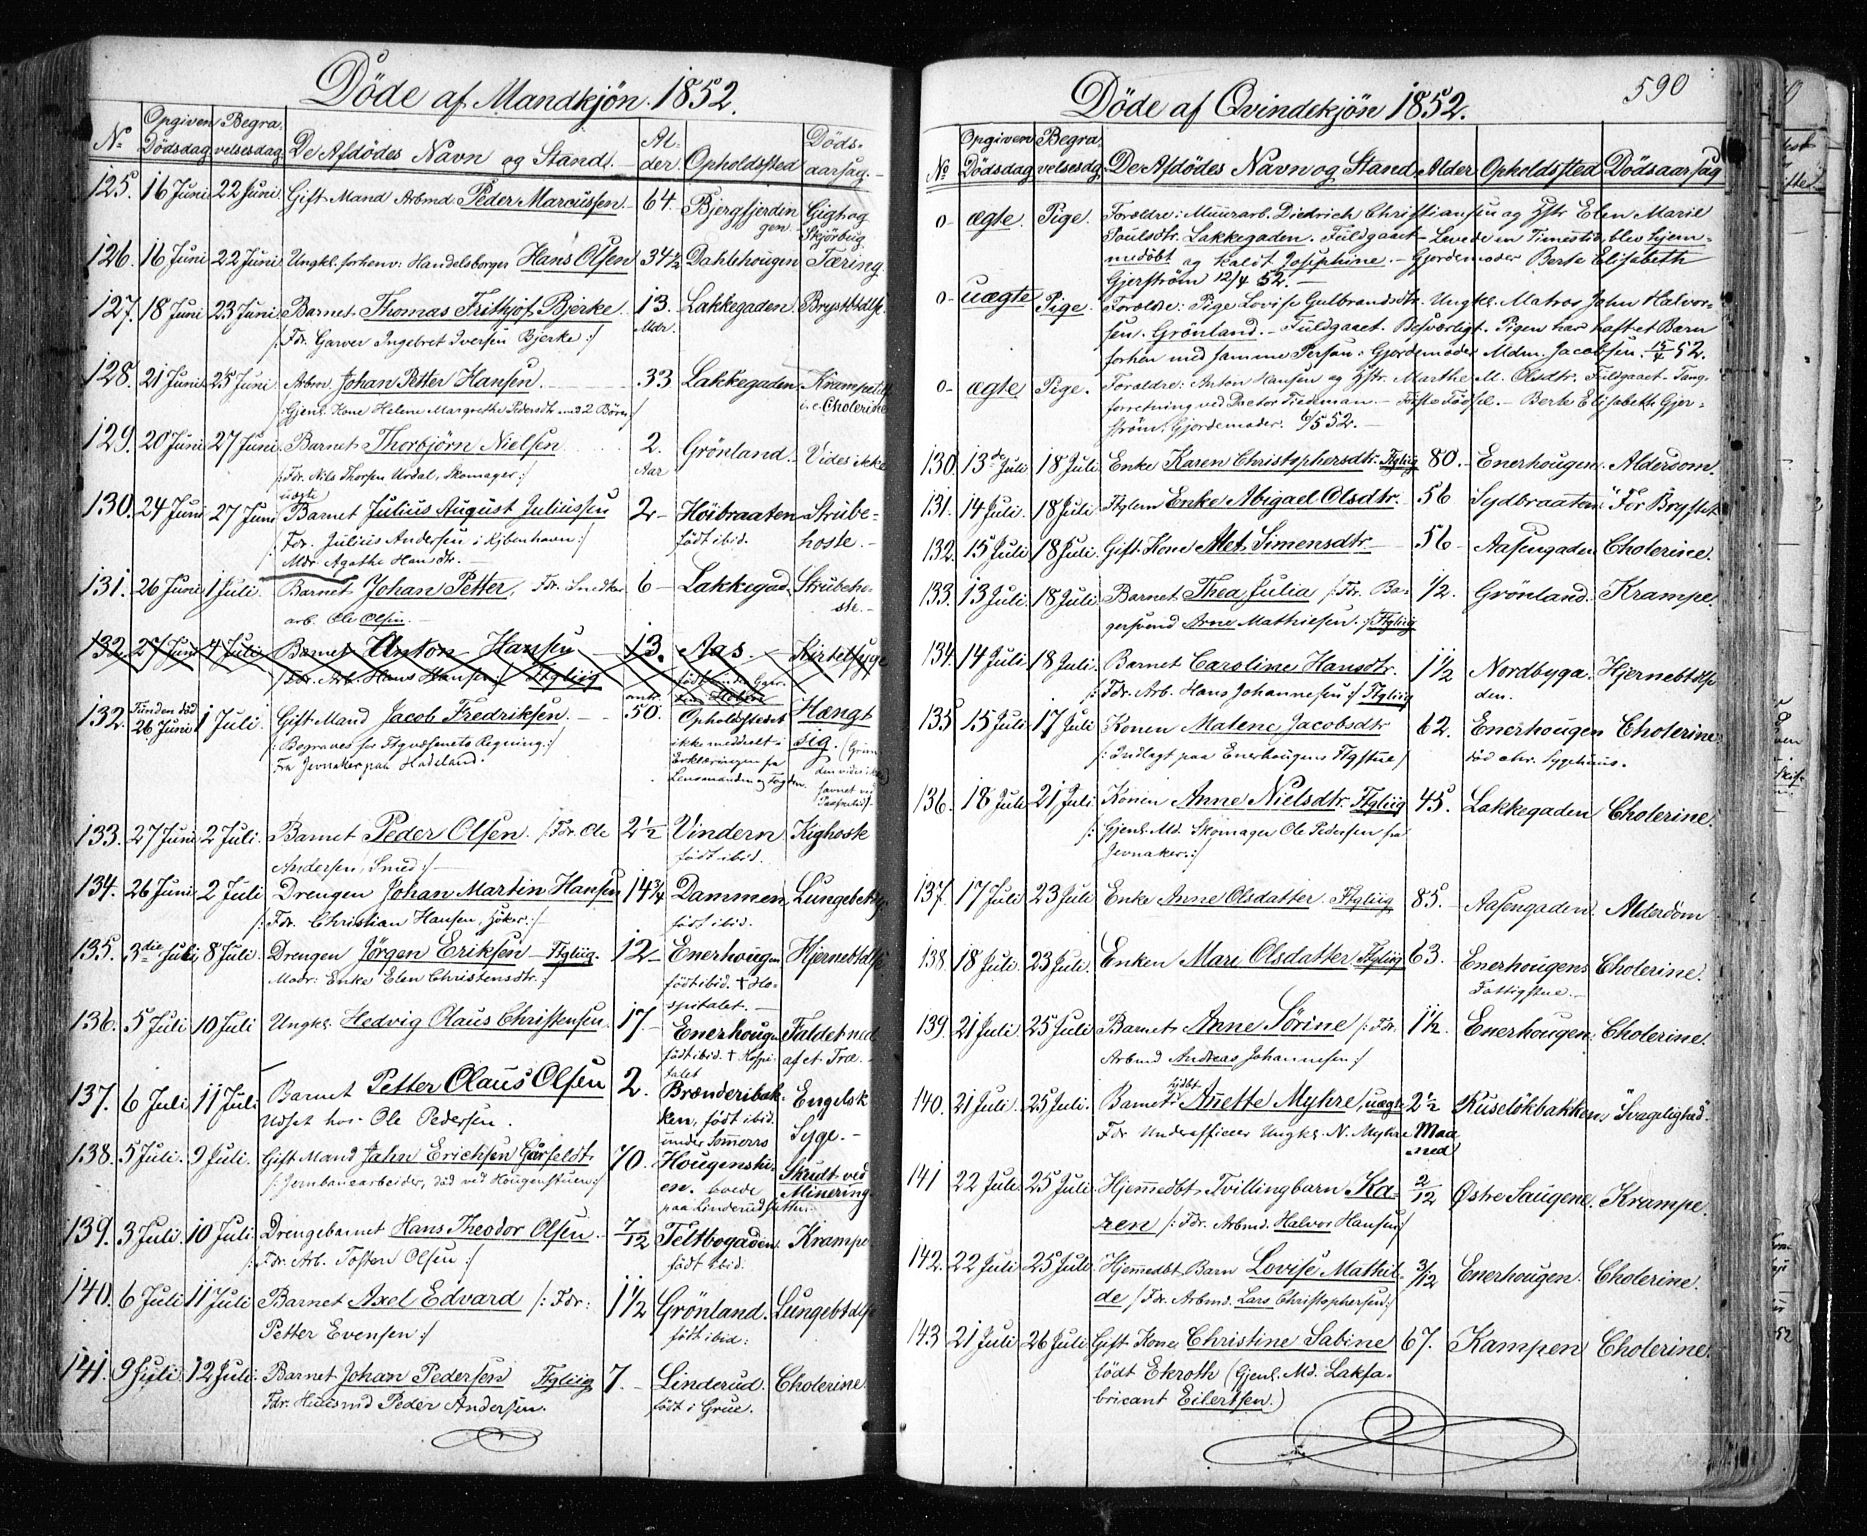 Döde af Mandkjön. 1852.
No Opgiven Dödsdag Begravelsesdag De Afdödes Navn og Stand. Alder. Opholdssted Dödsaarsag.
125. 16 Juni 22 Juni Gift Mand Arbmd Peder Marcussen. 64. Bjergfjerdengen. Gigt og Skjörbug.
126. 16 Juni 22 Juni Ungkl. forhenv: Handelsborger Hans Olsen 34½ Dahlehougen Tæring.
127. 18 Juni 23 Juni Barnet Thomas Frithjof Bjerke. 13. Mdr. Lakkegaden Brystbtdlse.
/: Fdr. Garver Ingebret Iversen Bjerke :/
128. 21 Juni 25 Juni Arbm. Johan Petter Hansen. 33 Lakkegaden Krampetilf.
/: Gjenl. Kone Helene Margrethe Pedersdtr. med 2 Börn :/ i. e. Cholerine
129. 20 Juni 27 Juni Barnet Thorbjörn Nielsen 2. Aar Grönland. Vides ikke
/: Fdr. Nils Thorsen Urdal, Skomager :/
130. 24 Juni 27 Juni uægte Barnet Julius August Juliussen 2 Höibraaten Strube-
/: Fdr. Julius Andersen i Kjbenhavn :/ födt ibid. hoste.
Mdr. Agathe Hansdtr.
131. 26 Juni 1 Juli. Barnet Johan Petter, Fdr. Snedker 6 Lakkegad. Strubeho-
arb. Ole Olsen. ste.
132. 27 Juni 4 Juli Barnet Anton Hansen 13. Aas. Kirtelsyge
/: Fdr. Arb. Hans Hansen :/ Ftgliig
132. Funden död 26. Juni 1 Juli. Gift Mand Jacob Fredriksen. omtr. 50. Opholdsstedet Hængt
/: Begraves for Ftgvæsenets Regning :/ ikke meddelt i sig.
Fra Jevnaker paa Hadeland. Erklæringen fra
Lensmanden og Fogden.
133. 27 Juni 2 Juli. Barnet Peder Olsen. /: Fdr. Ole 2½ Vindern Kighoste
Andersen, Smed :/ födt ibid.
134. 26 Juni 2 Juli Drengen Johan Martin Hansen 14¾ Dammen, Lungebet.
/: Fdr. Christian Hansen, :/ födt ibid.
135. 3die Juli 8 Juli. Drengen Jörgen Eriksen Ftgliig. 12 Enerhougen Hjernebtdlse
Modr: Enke Elen Christensdtr. :/ födt ibid. † Ho-
spitalet.
136. 5 Juli 10 Juli Ungkl. Hedvig Olaus Christensen. 17 Enerhougen Faldet ned
födt ibid. † Hospi- af et Træ.
talet
137. 6 Juli 11 Juli Barnet Petter Olaus Olsen 2. Brænderibak- Engelsk
Udsat hos Ole Pedersen. ken, födt ibid. Syge.
under Sommerro
138. 5 Juli. 9 Juli. Gift Mand Jahn Erichsen Garfeldt. 70. Hougenstu- Skudt ved
/: Jernbanearbeider, död ved Hougenstuen :/ en. boede Minering.
paa Linderud
139. 3 Juli. 10 Juli. Drengebarnet Hans Theodor Olsen. 7/12 Tettbogaden. Krampe
/: Fdr. Arb. Tosten Olsen :/ födt ibid.
140. 6 Juli 11 Juli Barnet Axel Edvard /: Fdr: 1½ Grönland. Lungebtdlse
Petter Evensen :/ födt ibid:
141. 9 Juli. 12 Juli. Barnet Johan Pedersen Ftgliig 7. Linderud. Cholerine.
Fdr. Huusmd Peder Andersen. födt i Grue.
Döde af Qvindekjön 1852.
590
No Opgiven Dödsdag Begravelsesdag De Afdödes Navn og Stand Alder Opholdssted Dödsaarsag
0- ægte Pige. Forældre: Muurarb. Dietrich Christiansen og Hstr. Elen Marie
Poulsdtr. Lakkegaden. Fuldgaaet. Levede en Timestid, blev hjem-
medöbt og kaldt Josephine. Gjordemoder Berte Elisabeth
Gjerström 12/4 52.
0- uægte Pige. Forældre: Pige Lovise Gulbrandsdtr. Ungkl. Matros Jahn Halvor-
sen. Grönland. Fuldgaaet. Besværligt. Pigen har haft et Barn
forhen med samme Person. Gjordemoder Mdm. Jacobsen. 15/4 52.
0- ægte Pige. Forældre: Anton Hansen og Hstr. Marthe M. Olsdtr. Fuldgaaet. Tang-
forretning ved Doctor Tiedeman. Förste Födsel. Berte Elisabeth Gjer-
ström, Gjordemoder. 6/5 52.
130. 13de Juli 18 Juli. Enke Karen Christophersdtr. Ftgliig 80. Enerhougen. Alderdom.
131. 14 Juli. 18 Juli. Ftglem Enke Abigael Olsdtr. 56 Sydbraaten. "For Brystet
132. 15 Juli 18 Juli. Gift Kone Alet Simensdtr 56 Aasengaden Cholerine.
133. 13 Juli 18 Juli. Barnet Thea Julia /: Fdr. Ba- ½. Grönland. Krampe.
gersvend Arne Mathiesen. :/ Ftgliig
134. 14 Juli 18 Juli. Barnet Caroline Hansdtr. 1½ Nordbyga- Hjernebtdlse
/: Fdr. Arb. Hans Johannesen :/ Ftgliig den.
135 15 Juli 17 Juli Konen Malene Jacobsdtr 62. Enerhougen Cholerine.
/: Indlagt paa Enerhougens Ftgstue / död Chr. Sygehuus.
136. 18 Juli 21 Juli Konen Anne Nielsdtr. Ftgliig 45. Lakkegaden Cholerine.
/: Gjenl. Md. Skomager Ole Pedersen fra
Jevnaker. :/
137. 17 Juli 23 Juli Enke Anne Olsdatter Ftgliig 85. Aasengaden. Alderdom
138 18 Juli. 23 Juli. Enken Mari Olsdatter Ftgliig 63. Enerhougens Cholerine.
Fattigstue.
139. 21 Juli. 25 Juli. Barnet Anne Sörine /: Fdr. 1½ Enerhougen. Cholerine.
Arbmd Andreas Johannesen :/
140. 21 Juli. 25 Juli. Barnet Anette Myhre, uægte 2½ Ruselökbakken "Svagelighed".
Fdr Underofficeer Ungkl. N. Myhre Maaned
141 22 Juli. 25 Juli. Hjemmedbt. Tvillingbarn Ka- 2/12 Østre Saugene. Krampe.
ren /: Fdr. Arbmd. Halvor Hansen :/
142. 22 Juli. 25 Juli. Hjemmedbt. Barn Lovise Mathil- 3/12 Enerhougen. Cholerine.
de /: Fdr. Arbmd. Lars Christophersen :/
143 21 Juli 26 Juli Gift Kone Christine Sabine 67. Kampen Cholerine.
födt Ekroth (Gjenl. Md. Lakfa-
bricant Eilertsen.)